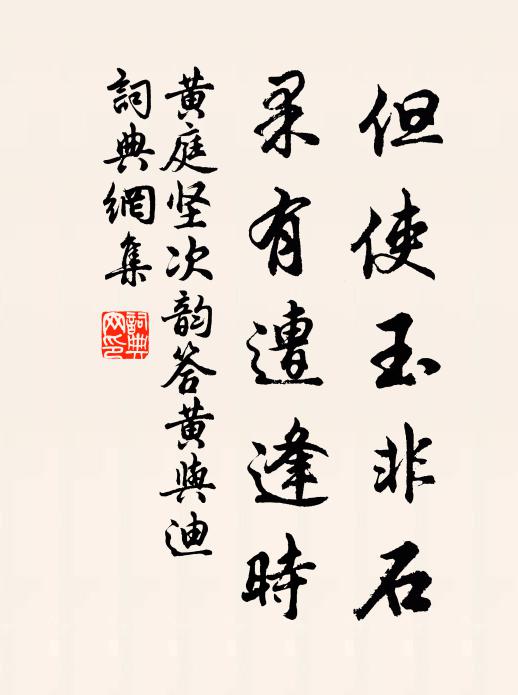 但使玉非石
果有遭逢時
黄庭坚次韵答黄與迪
詞典網集
詞典
网印